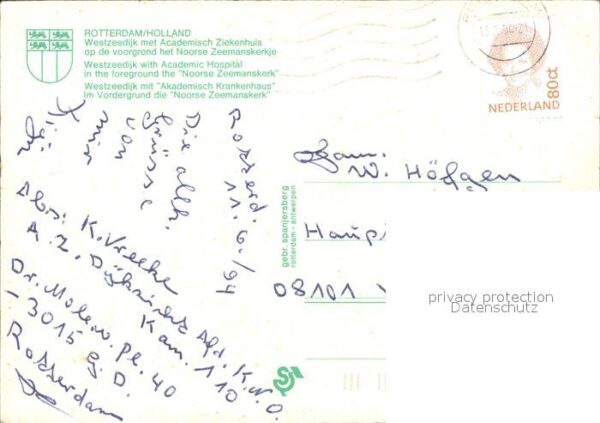 ROTTERDAM/HOLLAND
Westzeedijk met Academisch Ziekenhuis
op de voorgrond het Noorse Zeemanskerkje
Westzeedijk with Academic Hospital
in the foreground the "Noorse Zeemanskerk"
Westzeedijk mit "Akademisch Krankenhaus"
Im Vordergrund die "Noorse Zeemanskerk"
80ct
NEDERLAND
Rotterd.
11. 6. /94
Die allh.
Grüsse
von
mir
Fam.
W. Höfgen
Haup
08101
gebr. spanjersberg
rotterdam - antwerpen
privacy protection
Datenschutz
Abs: K. Vreeke
A. Z. Dijkzicht Afd. K.N.O.
Kam. 110
Dr. Molew. Pl. 40
- 3015 G.D.
Rotterdam